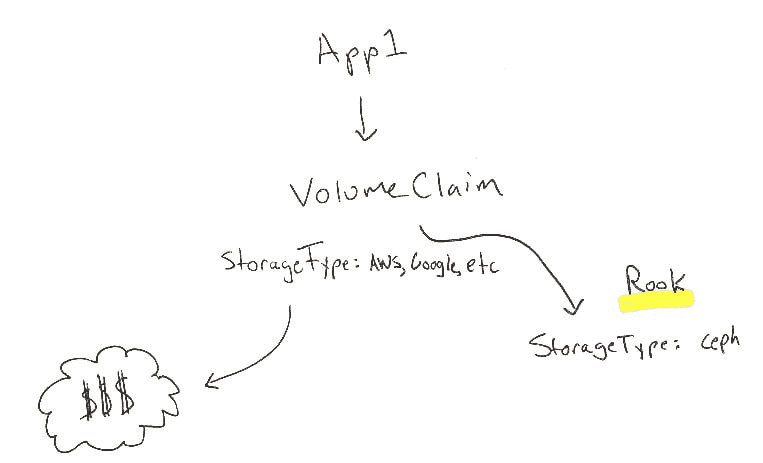 App1
VolumeClaim
StorageType: AWS, Google, etc
Rook
StorageType: ceph
$$$